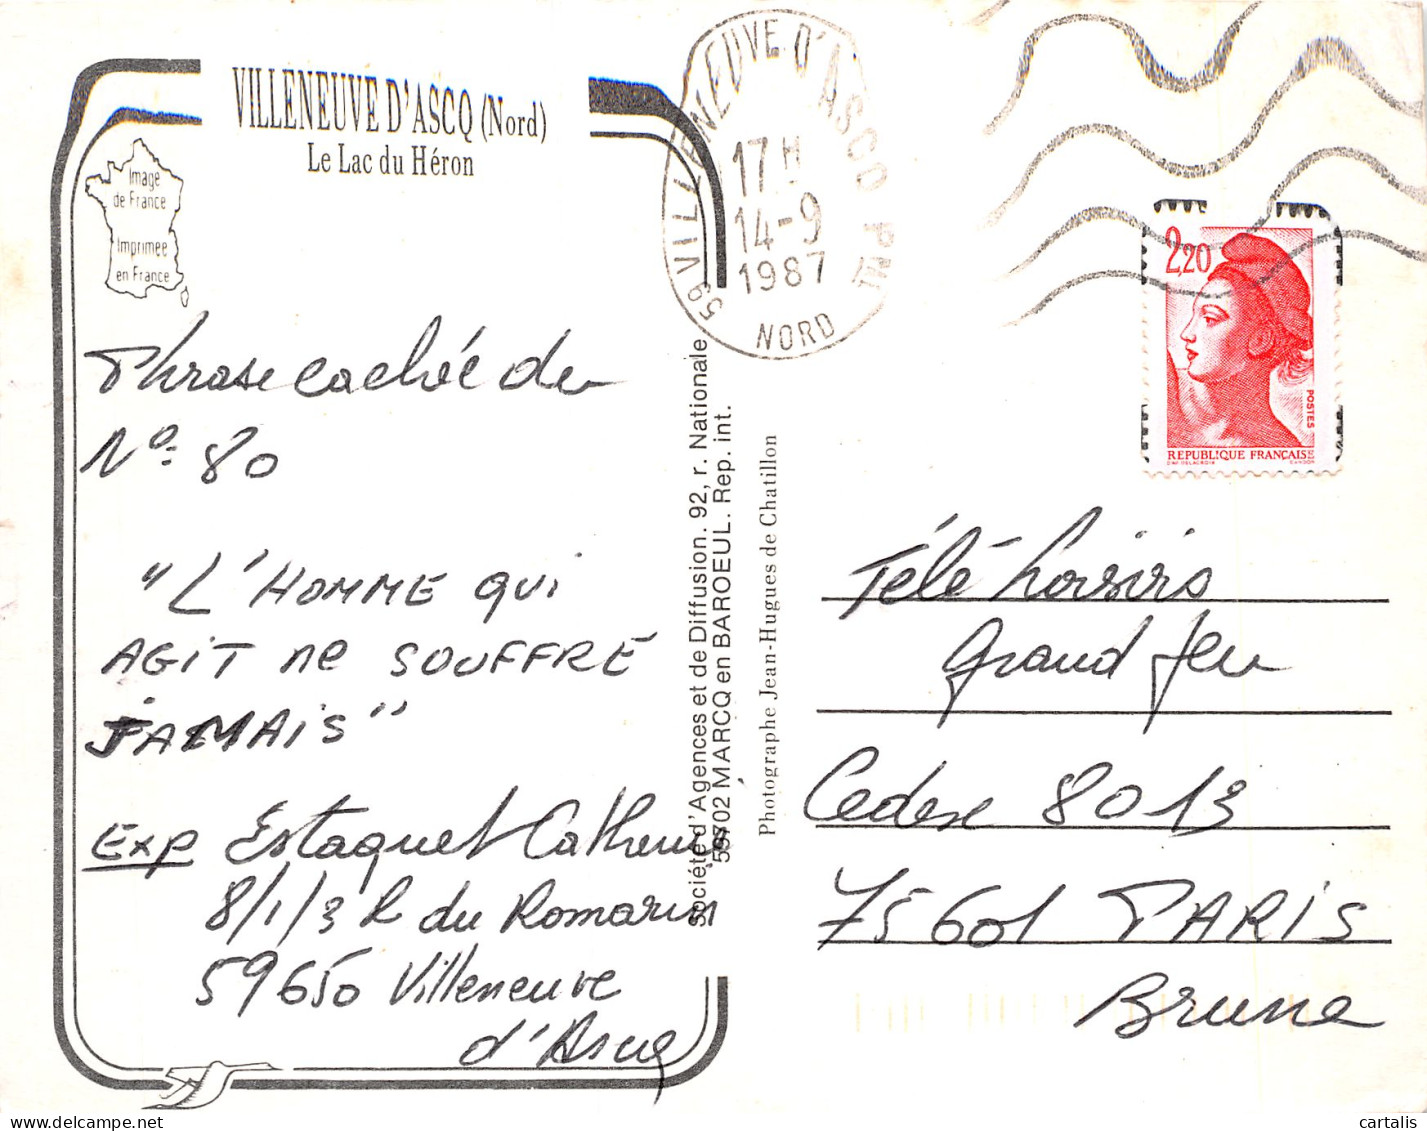 VILLENEUVE D'ASCQ (Nord)
Le Lac du Héron
Image
de France
Imprimée
en France
59 VILLENEUVE D'ASCQ PAL
17 H
14-9
1987
NORD
2,20
POSTES
REPUBLIQUE FRANÇAISE
D'AP. DELACROIX
GANDON
Phrase cachée du
N° 80
"L'HOMME QUI
AGIT NE SOUFFRE
JAMAIS"
Exp Estaquet Catherine
8/1/3 R du Romarin
59650 Villeneuve
d'Ascq
Société d'Agences et de Diffusion. 92, r. Nationale
59702 MARCQ en BAROEUL. Rep. int.
Photographe Jean-Hugues de Chatillon
Télé Loisirs
Grand Jeu
Cedex 8013
75601 PARIS
Brune
cartalis